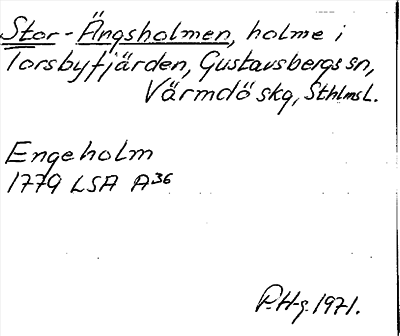 Stor-Ängsholmen, holme i
Torsbyfjärden, Gustavsbergs sn,
Värmdö skg, Sthlms L.
Engeholm
1779 LSA A36
P.H-g. 1971.